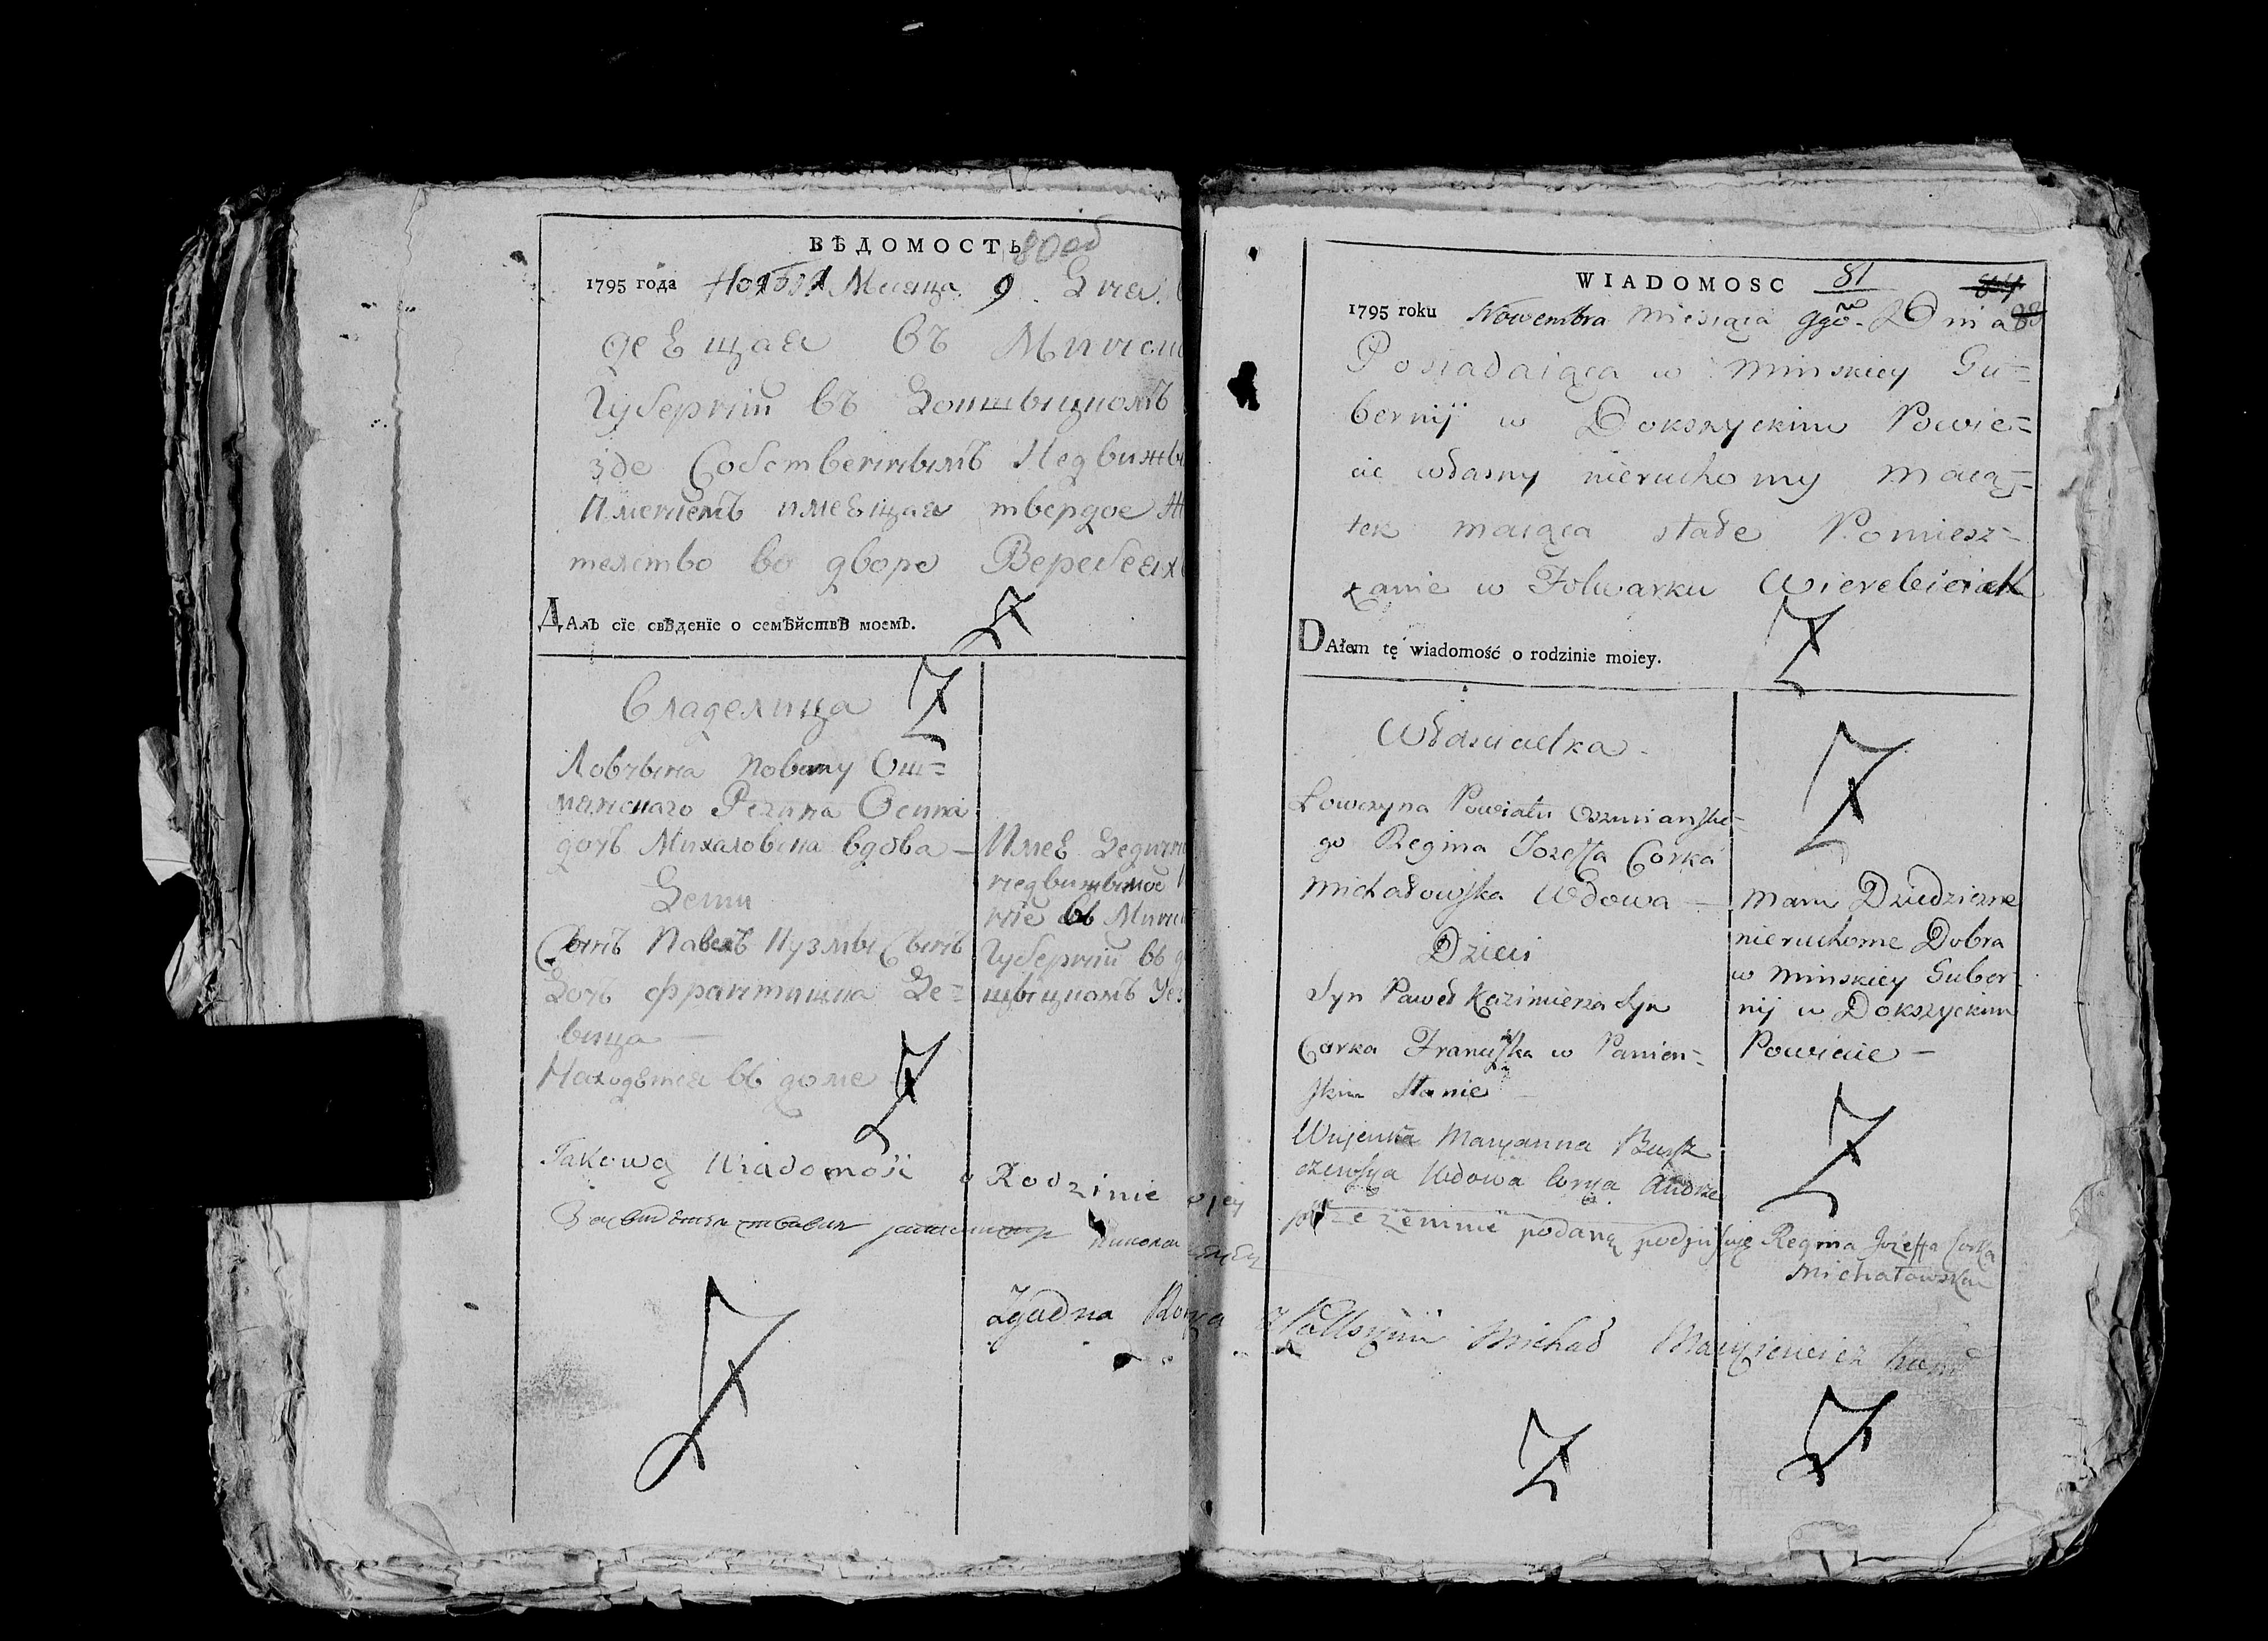 ВѢДОМОСТЬ 80 об
1795 года Ноября Месяца 9 Дня
деѣщая въ Минск
Губернїи въ Докшыцкомъ
зде Собственнымъ Недвижы
Имениемъ имеѣщая твердое Ж
телство во дворе Веребеях
ДАлъ сїе свѣденїе о семѣйствѣ моемъ.
Владелица
Ловчына Повяту Ош=
мянскаго Регина Осипа
дочъ Михаловска вдова —
Дети
Сынъ Павелъ Кузмы Сынъ
Дочъ Францишка Де=
вица —
Находятся въ доме
Имеѣ Дедичн
недвижымое
ние въ Минс
Губернїи въ д
шыцкомъ Уез
Takową Wiadomość o Rodzinie
Zgudna Kopja
WIADOMOSC 81
1795 roku Nowembra Miesiąca 9go Dnia
Posiadaiąca w Minskiey Gu=
bernij w Dokszyckim Powie=
cie własny nieruchomy maią=
tek maiąca stałe Pomiesz=
kanie w Folwarku Wierebieiach
DAłem tę wiadomość o rodzinie moiey.
Właścicielka
Łowczyna Powiatu Oszmianskie=
go Regina Jozeffa Corka
Michałowska Wdowa —
Dzieci
Syn Paweł Kazimierza Syn
Corka Franciszka w Panien=
skim Stanie
Wujenka Maryanna
Wdowa Corka
Mam Dziedziczne
nieruchome Dobra
w Minskiey Guber
nij w Dokszyckim
Powiecie —
przezemnie podaną podpisuję Regina Jozeffa Corka
Michałowska
Michał